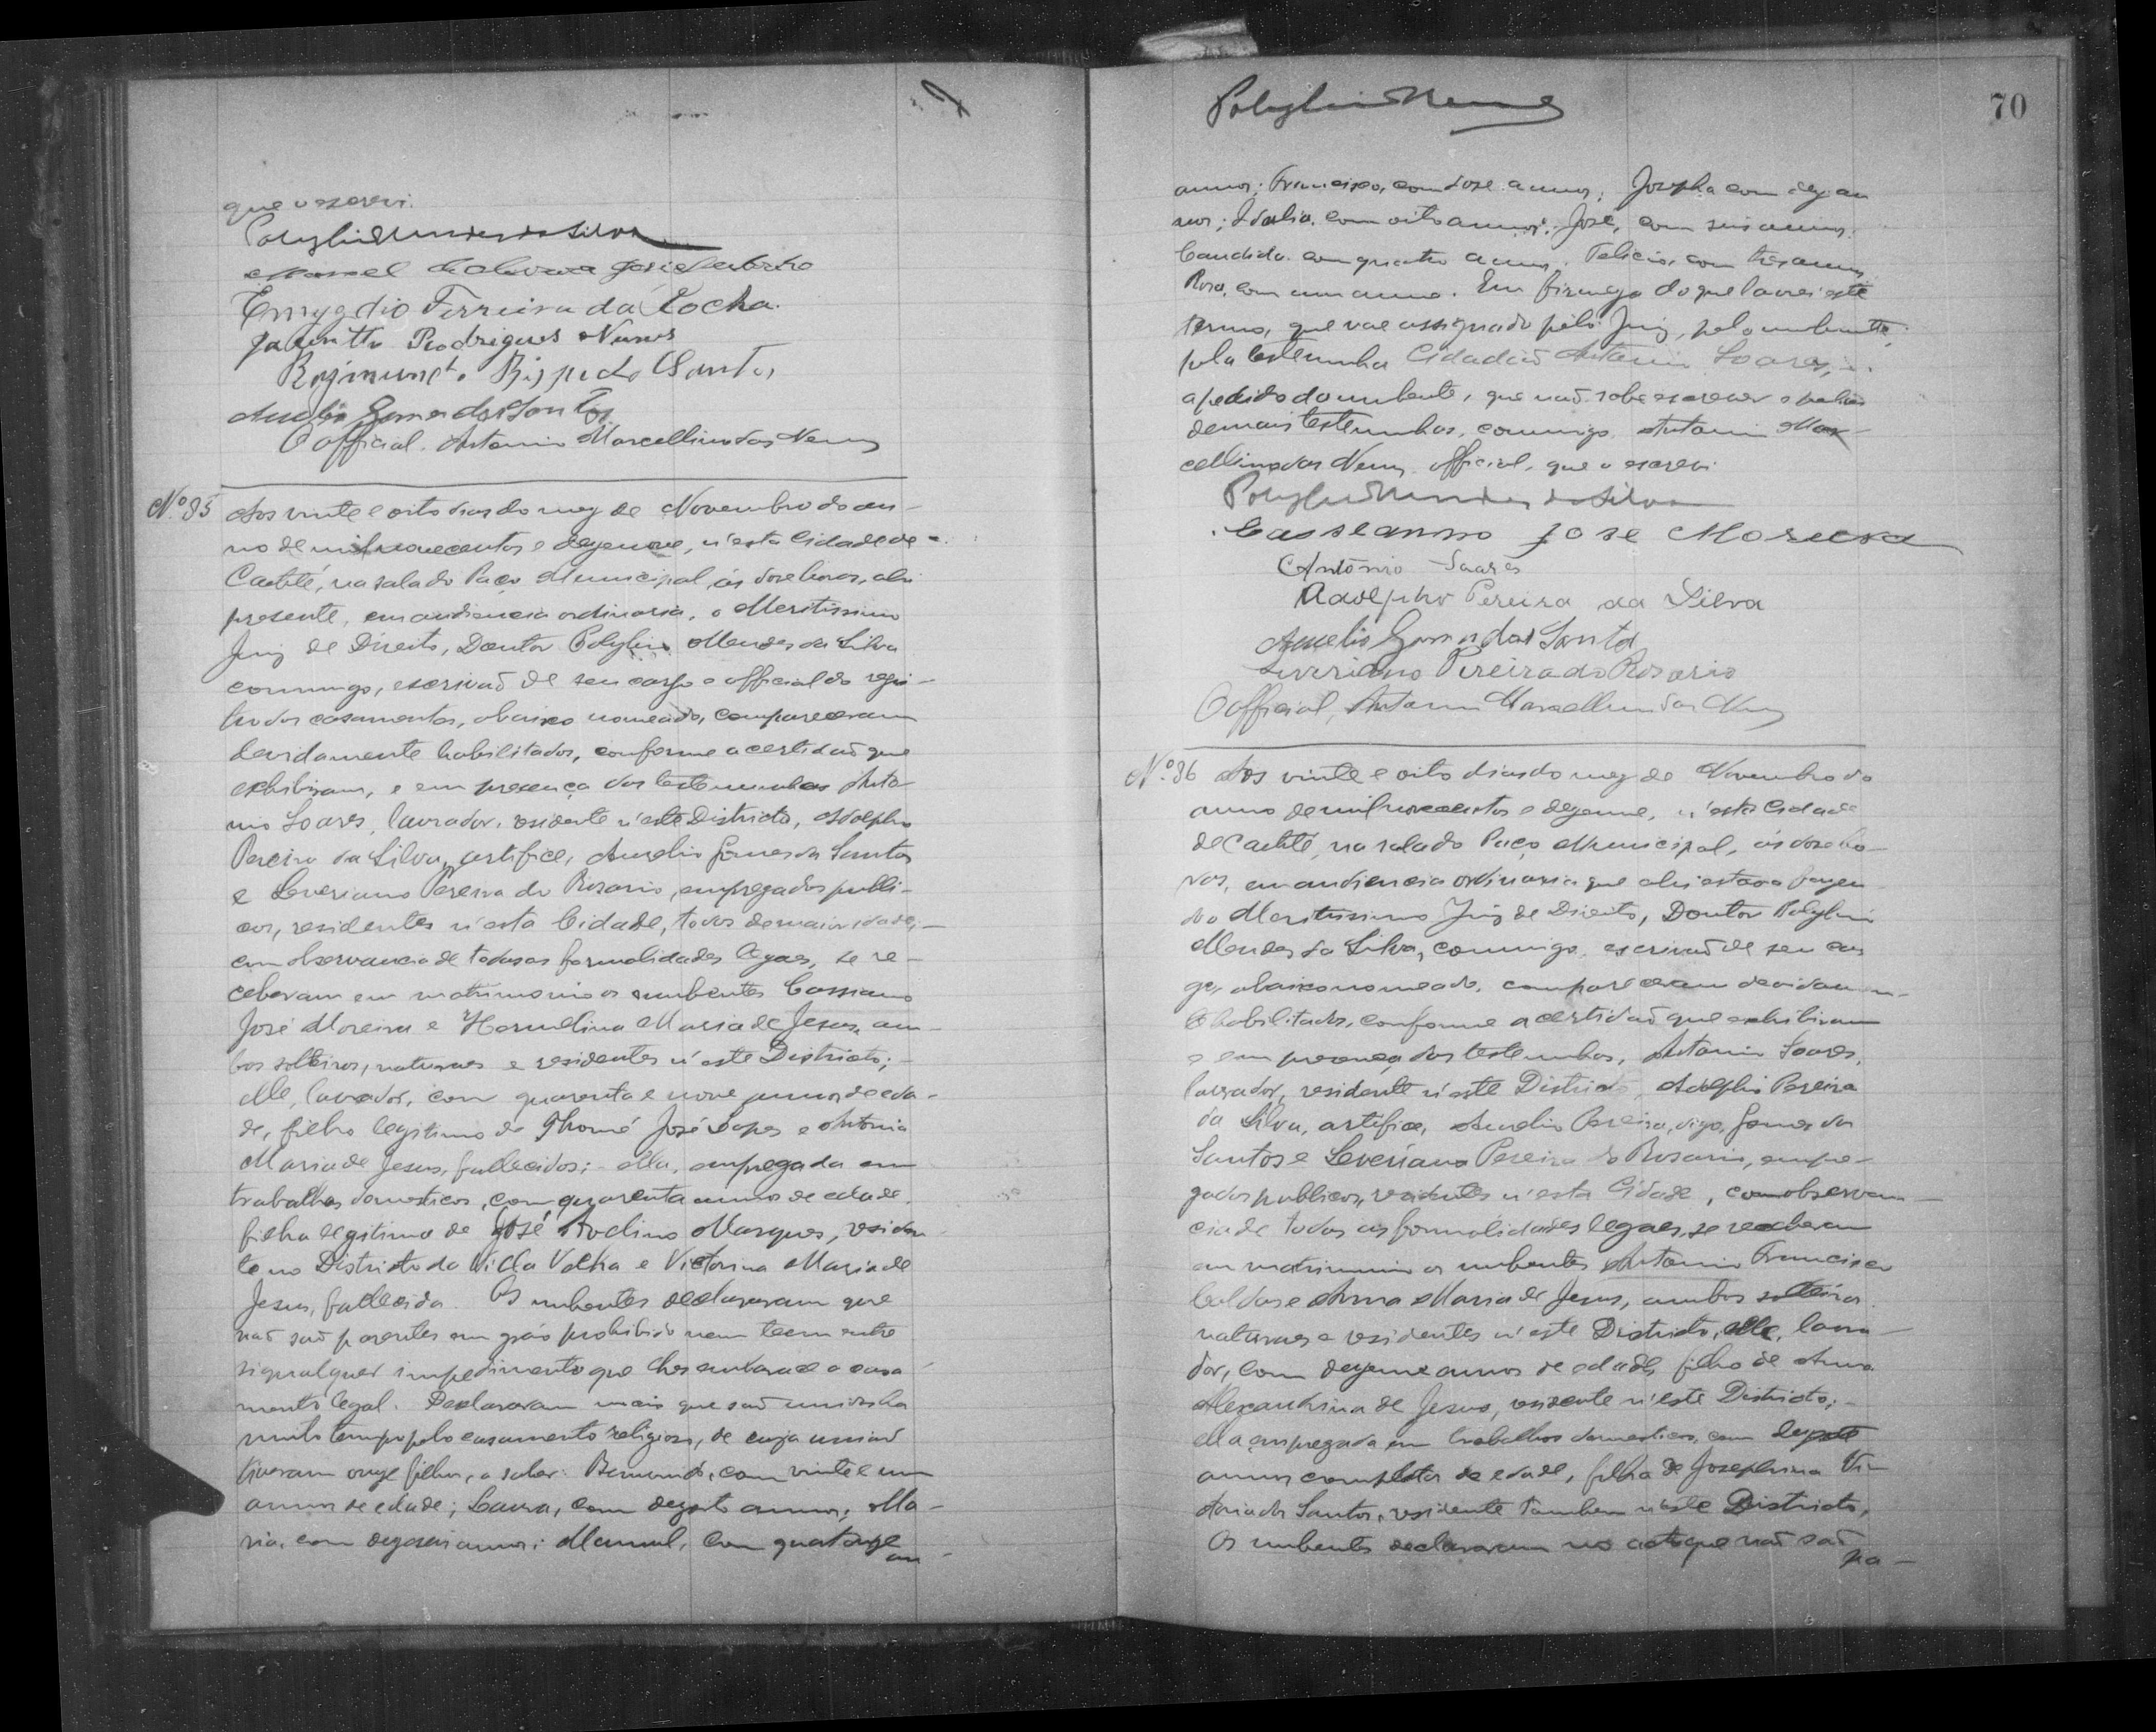 que o escrevi.
Polybio Mendes da Silva
Manoel de
Emygdio Ferreira da Rocha.
Jacintho Rodrigues Nunes
Raimund. Bispo do Santos
Aurelio Gomes dos Santos
O official. Antonio Marcellino das Neves
Nº 85 Aos vinte e oito dias do mez de Novembro do an-
no de mil novecentos e dezenove, n'esta Cidade de
Caetité, na sala do Paço Municipal, ás doze horas, ahi
presente, em audiencia ordinaria, o Meritissimo
Juiz de Direito, Doutor Polybio Mendes da Silva
commigo, escrivaõ de seu cargo e official do regis-
tro dos casamentos, abaixo nomeado, compareceram
devidamente habilitados, conforme a certidaõ que
exhibiram, e em presença das testemunhas Anto-
nio Soares, lavrador, residente n'este Districto, Adolpho
Pereira da Silva, artifice, Aurelio Gomes dos Santos
e Severiano Pereira do Rosario, empregados publi-
cos, residentes n'esta Cidade, todos de maior idade,
com observancia de todas as formalidades legaes, se re-
ceberam em matrimonio os nubentes Cassiano
José Moreira e Hermelina Maria de Jesus, am-
bos solteiros, naturaes e residentes n'este Districto;
elle, lavrador, com quarenta e nove annos de eda-
de, filho legitimo de Thomé José Lopes e Antonia
Maria de Jesus, fallecidos; ella, empregada em
trabalhos domesticos, com quarenta annos de edade,
filha legitima de José Avelino Marques, residen-
te no Districto da Villa Velha e Victorina Maria de
Jesus, fallecida. Os nubentes declararam que
naõ saõ parentes em gráo prohibido nem teem entre
si qualquer impedimento que lhes embarace o casa-
mento legal. Declararam mais que saõ unidos ha
muito tempo pelo casamento religioso, de cuja uniaõ
tiveram onze filhos, a saber: com vinte e um
annos de edade; Laura, com dezoito annos; Ma-
ria, com dezeseis annos; Manoel, com quatorze
an-
Polybio Mendes
70
annos; Francisco, com doze annos; Josepha com dez an
nos; Idalia, com oito annos; José, com seis annos;
Candida com quatro annos; Felicio, com tres annos,
Rosa, com um anno. Em firmeza do que lavrei este
termo, que vae assignado pelo Juiz, pelo nubente,
pela testemunha Cidadaõ Antonio Soares,
a pedido da nubente, que naõ sabe escrever e pelas
demais testemunhas, commigo, Antonio Mar-
cellino das Neves official, que o escrevi.
Polybio Mendes da Silva
Casseanno Jose Moreira
Antônio Soares
Adolpho Pereira da Silva
Aurelio Gomes dos Santos
Severiano Pereira do Rosario
O official, Antonio Marcellino das Neves
Nº 86 Aos vinte e oito dias do mez de Novembro do
anno de mil novecentos e dezenove, n'esta Cidade
de Caetité, na sala do Paço Municipal, ás doze ho-
ras, em audiencia ordinaria que ahi estava fazen
do o Meritissimo Juiz de Direito, Doutor Polybio
Mendes da Silva, commigo, escrivaõ de seu car
go, abaixo nomeado, compareceram devidamen-
te habilitados, conforme a certidaõ que exhibiram
e em presença das testemunhas, Antonio Soares,
lavrador, residente n'este Districto, Adolpho Pereira
da Silva, artifice, Aurelio Pereira, digo, Gomes dos
Santos e Severiano Pereira do Rosario, empre-
gados publicos, residentes n'esta Cidade, com observan-
cia de todas as formalidades legaes, se receberam
em matrimonio os nubentes Antonio Francisco
Caldas e Anna Maria de Jesus, ambos solteiros
naturaes e residentes n'este Districto, elle, lavra-
dor, com dezenove annos de edade, filho de Anna
Alexandrina de Jesus, residente n'este Districto;
ella empregada em trabalhos domesticos, com dezesete
annos completos de edade, filha de Josephina Vi-
ctoria dos Santos, residente tambem n'este Districto.
Os nubentes declararam no acto que naõ saõ
pa-